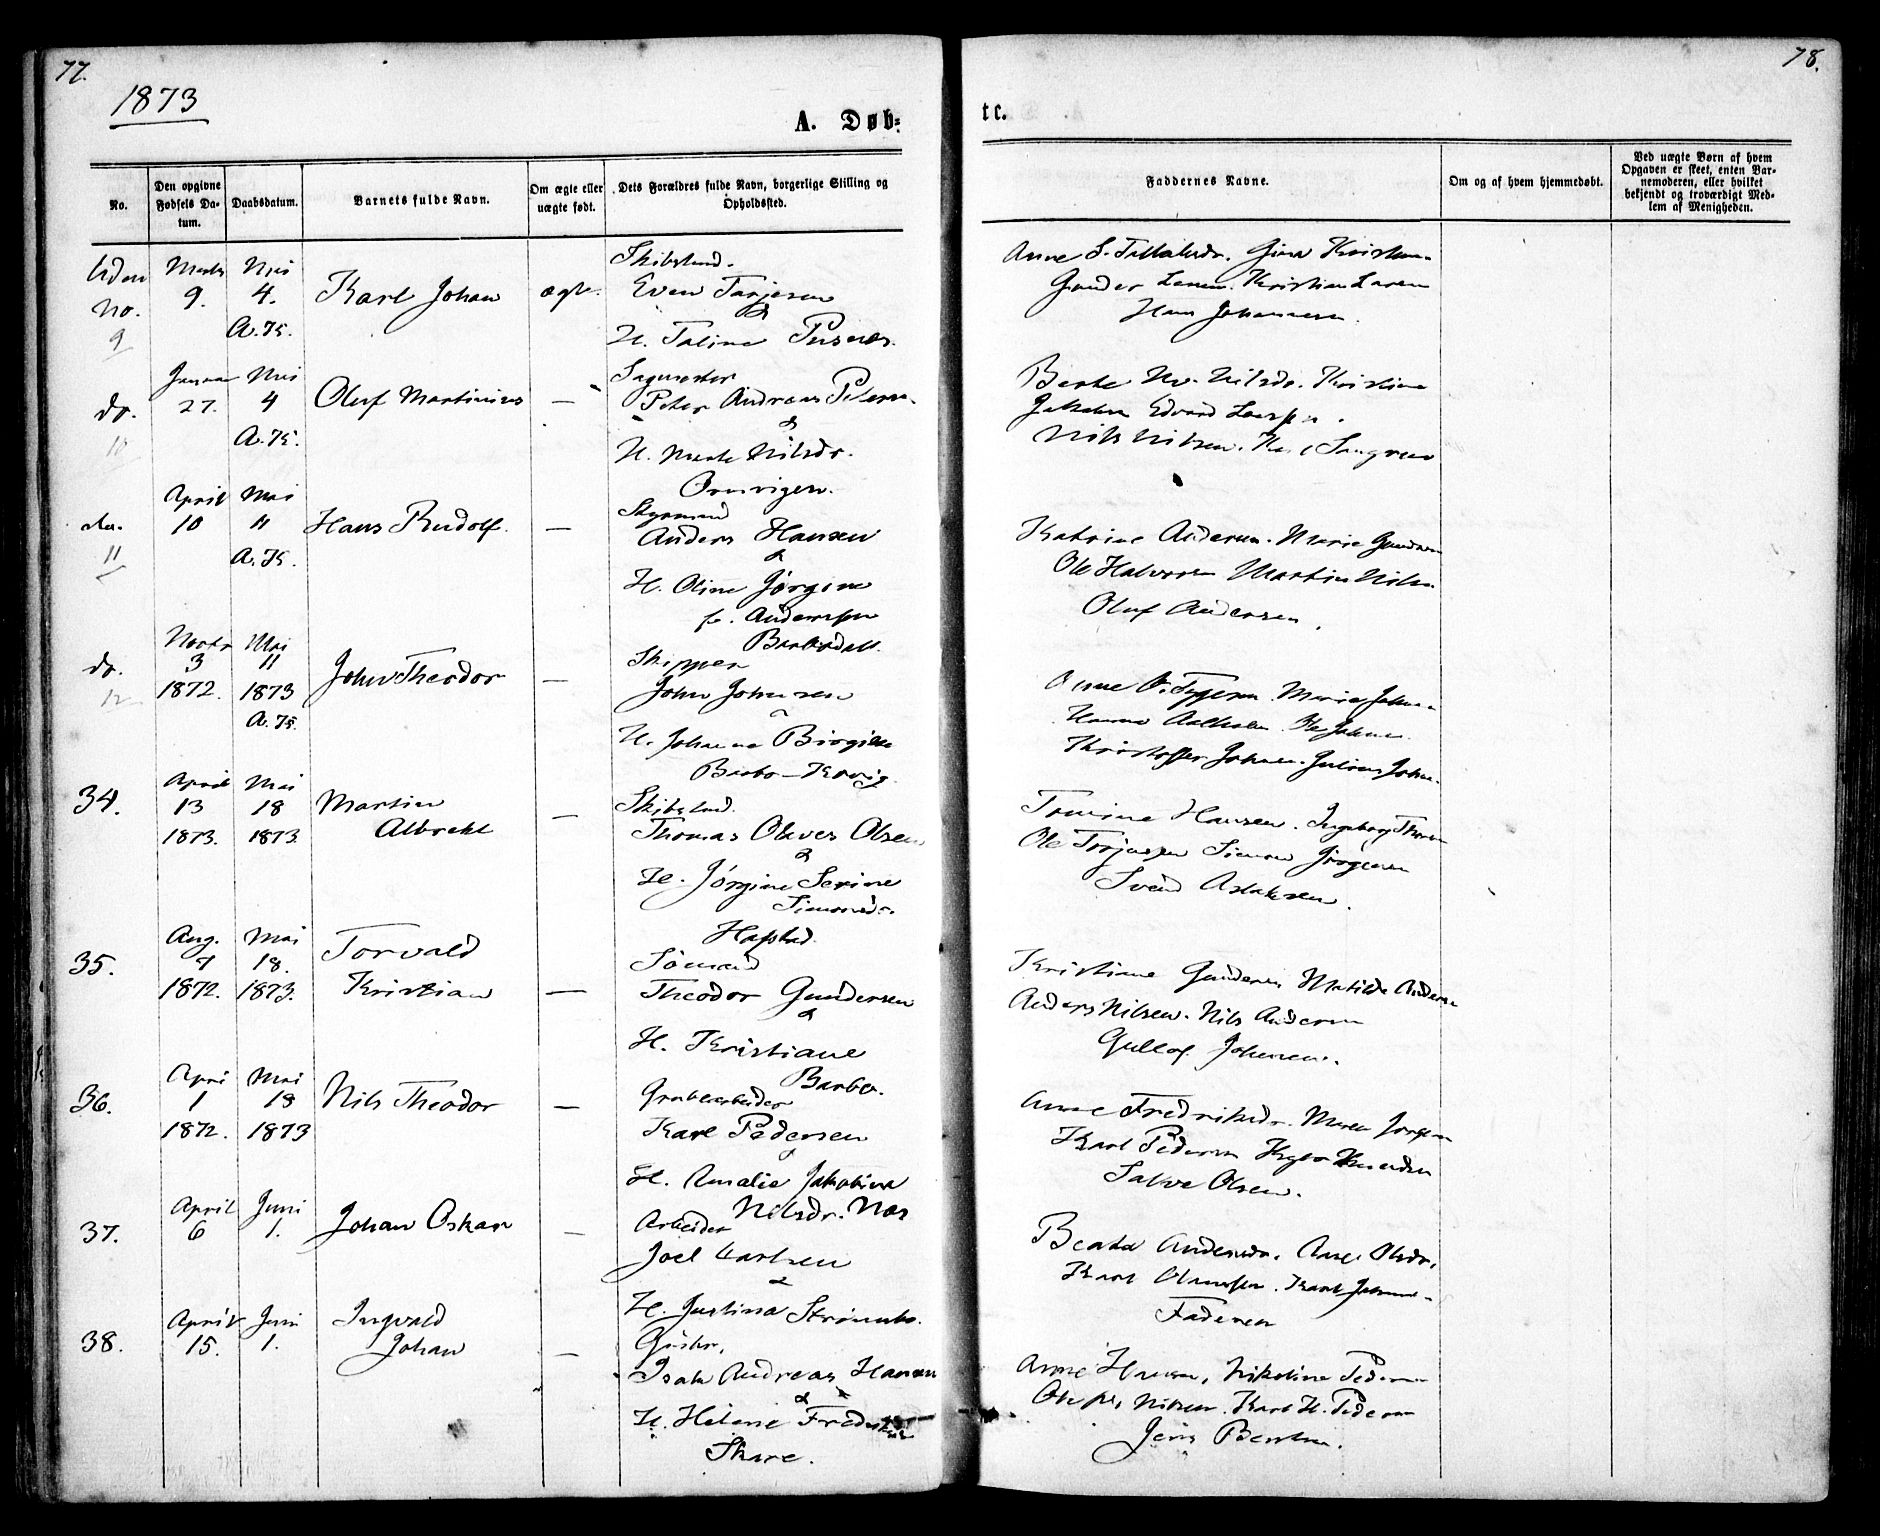 77.
78.
1873
A. Døb=
tc.
No.
Den opgivne Fødsels Da-tum.
Daabsdatum.
Barnets fulde Navn.
Om ægte eller uægte født.
Dets Forældres fulde Navn, borgerlige Stilling og Opholdssted.
Faddernes Navne.
Om og af hvem hjemmedøbt.
Ved uægte Børn af hvem Opgaven er skeet, enten Bar-nemoderen, eller hvilket bekjendt og troværdigt Med-lem af Menigheden.
Uden No. 9
Marts 9.
Mai 4.
A. 75.
Karl Johan
ægte.
Skibstmd.
Even Tarjesen
&
H. Taline
Anne S.
Gunder
Kristian Larsen
Hans Johannesen.
do. 10
Januar 27.
Mai 4
A. 75.
Oluf Martinius
—
Sagmester
Peter Andreas Petersen.
&
H. Marte Nilsdr.
Nils Nilsen.
do. 11
April 10
Mai 11
A. 75.
Hans Rudolf.
—
Styrmand
Anders Hansen
&
H. Oline Jørgine
f. Anderssen
Barbodal.
Katrine Andersen. Marie Gundersen
Ole Halvorsen Martin Nilsen
Oluf Andersen.
do. 12
Novbr 3 1872.
Mai 11 1873
A. 75.
John Theodor
—
Skipper
John Johnsen
H. Johanne
Barbo – Kovig.
Anne Marie Johnsen
Ole Johnsen.
Kristoffer Johnsen. Julius Johnsen.
34.
April 13 1873.
Mai 18 1873.
Martin Albrekt
—
Skibstmd.
Thomas Olves Olsen
&
H. Jørgine Serine
Simonsdr.
Hafstad.
Tomine Hansen. Ingeborg
Ole Torjussen Simon Jørgensen
Svend Aslaksen.
35.
Aug. 7 1872.
Mai 18. 1873.
Torvald Kristian
—
Sömand
Theodor Gundersen
&
H. Kristiane
Barbo.
Kristiane Gundersen Matilde Andersen
Anders Nilsen. Nils Andersen
Gullof Johnsen.
36.
Apri 1 1872.
Mai 18 1873
Nils Theodor
—
Grubearbeider
Karl Pedersen
&
H. Amalie Jakobine
Nilsdr. Næs
Anne Fredriksdr. Maren Jørgensen
Karl Pedersen Knudsen
Salve Olsen.
37.
April 6
Juni 1.
Johan Oskar
—
Arbeider
Joel Karlsen
&
H. Justina Strømsbo.
Beata Andersdr. Aase Olsdr.
Karl
Faderen
38.
April 15.
Juni 1.
Ingvald Johan
—
Isak Andreas Hansen
&
H. Helene
Skare.
Anne Hansen, Nikoline Pedersen
Nilsen. Karl H. Pedersen
Jens Berntsen.